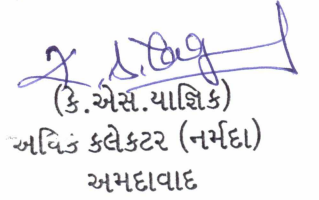 (કે.એસ.યાજ્ઞિક)
અધિક કલેકટર (નર્મદા)
અમદાવાદ